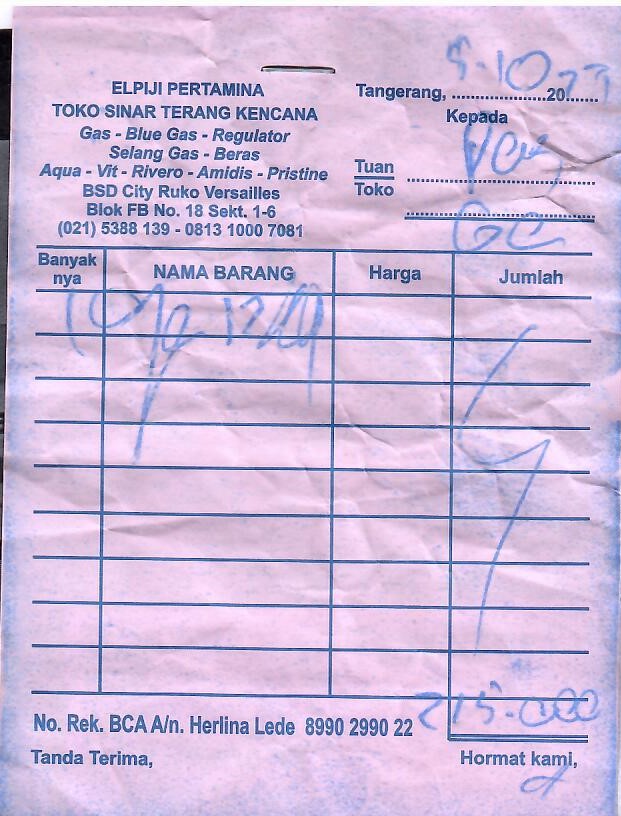 ELPIJI PERTAMINA
TOKO SINAR TERANG KENCANA
Gas - Blue Gas - Regulator
Selang Gas - Beras
Aqua - Vit - Rivero - Amidis - Pristine
BSD City Ruko Versailles
Blok FB No. 18 Sekt. 1-6
(021) 5388 139 - 0813 1000 7081
Tangerang, 5-10 20
Kepada
Tuan
Toko
Banyak nya NAMA BARANG Harga Jumlah
12 kg
215.000
No. Rek. BCA A/n. Herlina Lede 8990 2990 22
Tanda Terima, Hormat kami,